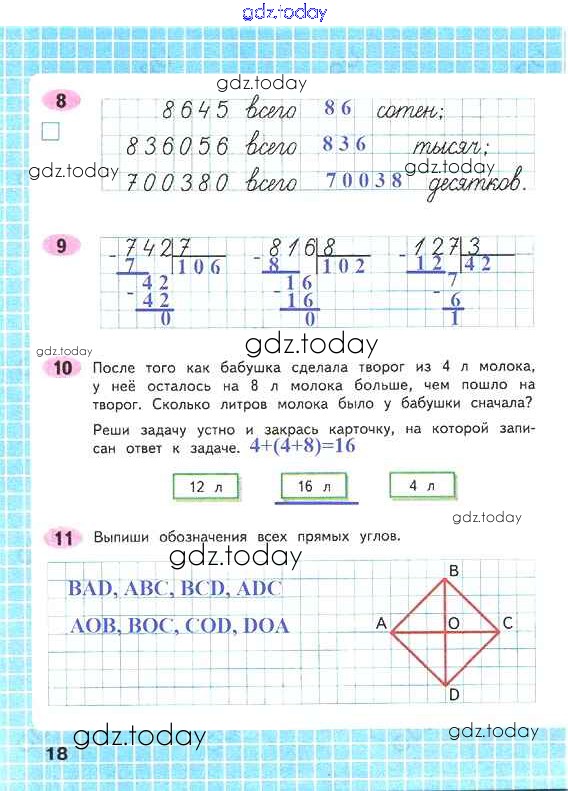 gdz.today
gdz.today
8
8645 всего 86 сотен;
836056 всего 836 тысяч;
gdz.today
gdz.today
700380 всего 70038 десятков.
9
- 742 7
7 106
- 42
42
0
- 816 8
8 102
- 16
16
0
- 127 3
12 42
- 7
6
1
gdz.today
gdz.today
10 После того как бабушка сделала творог из 4 л молока,
у неё осталось на 8 л молока больше, чем пошло на
творог. Сколько литров молока было у бабушки сначала?
Реши задачу устно и закрась карточку, на которой запи-
сан ответ к задаче. 4+(4+8)=16
12 л 16 л 4 л
gdz.today
11 Выпиши обозначения всех прямых углов.
gdz.today
BAD, ABC, BCD, ADC
AOB, BOC, COD, DOA
B
A O C
D
gdz.today
gdz.today
18